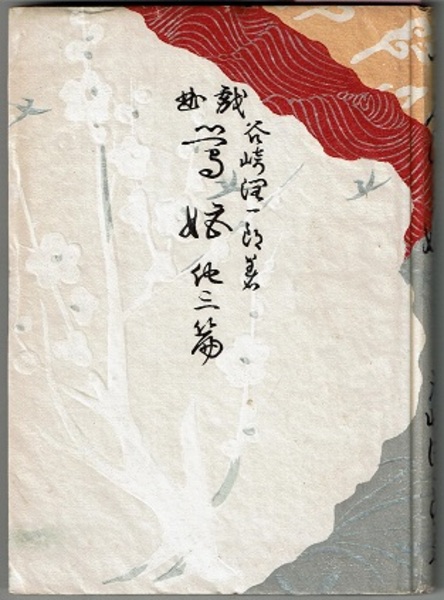 戯曲
谷崎潤一郎著
鶯姫 他三篇